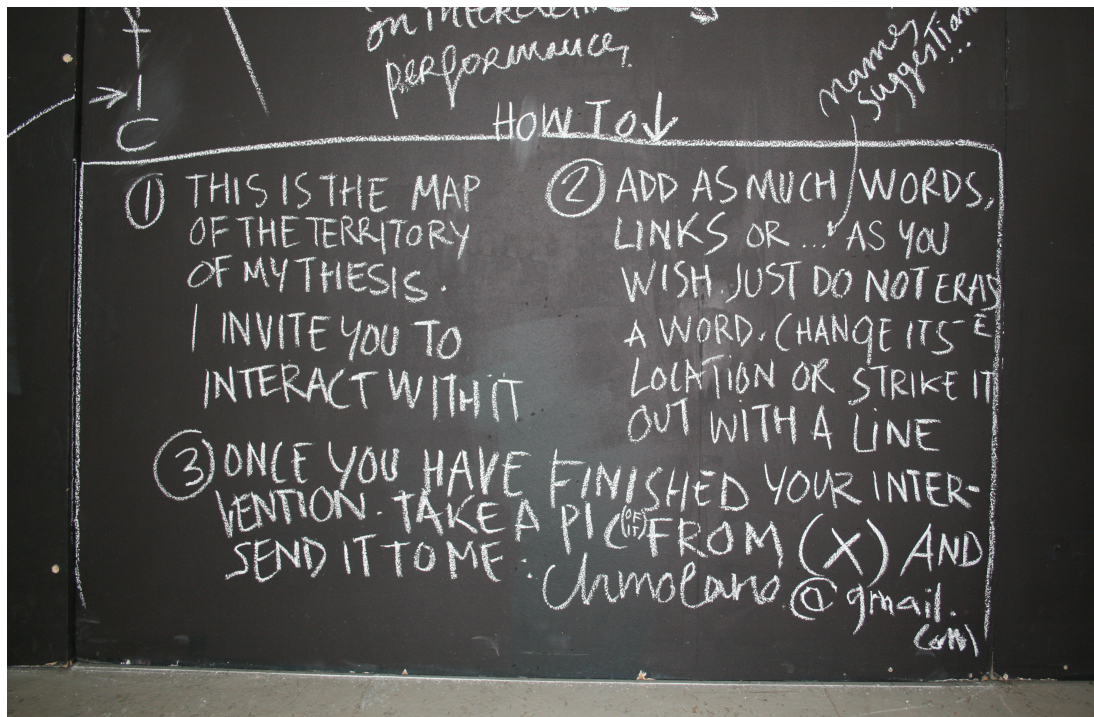 on
performance.
names,
suggestions...
C
HOW TO ↓
① THIS IS THE MAP
OF THE TERRITORY
OF MY THESIS.
I INVITE YOU TO
INTERACT WITH IT
② ADD AS MUCH WORDS,
LINKS OR ... AS YOU
WISH. JUST DO NOT ERAS
E
A WORD. CHANGE ITS
LOCATION OR STRIKE IT
OUT WITH A LINE
③ ONCE YOU HAVE FINISHED YOUR INTER-
VENTION. TAKE A PIC (OF IT) FROM (X) AND
SEND IT TO ME:
@gmail.
com